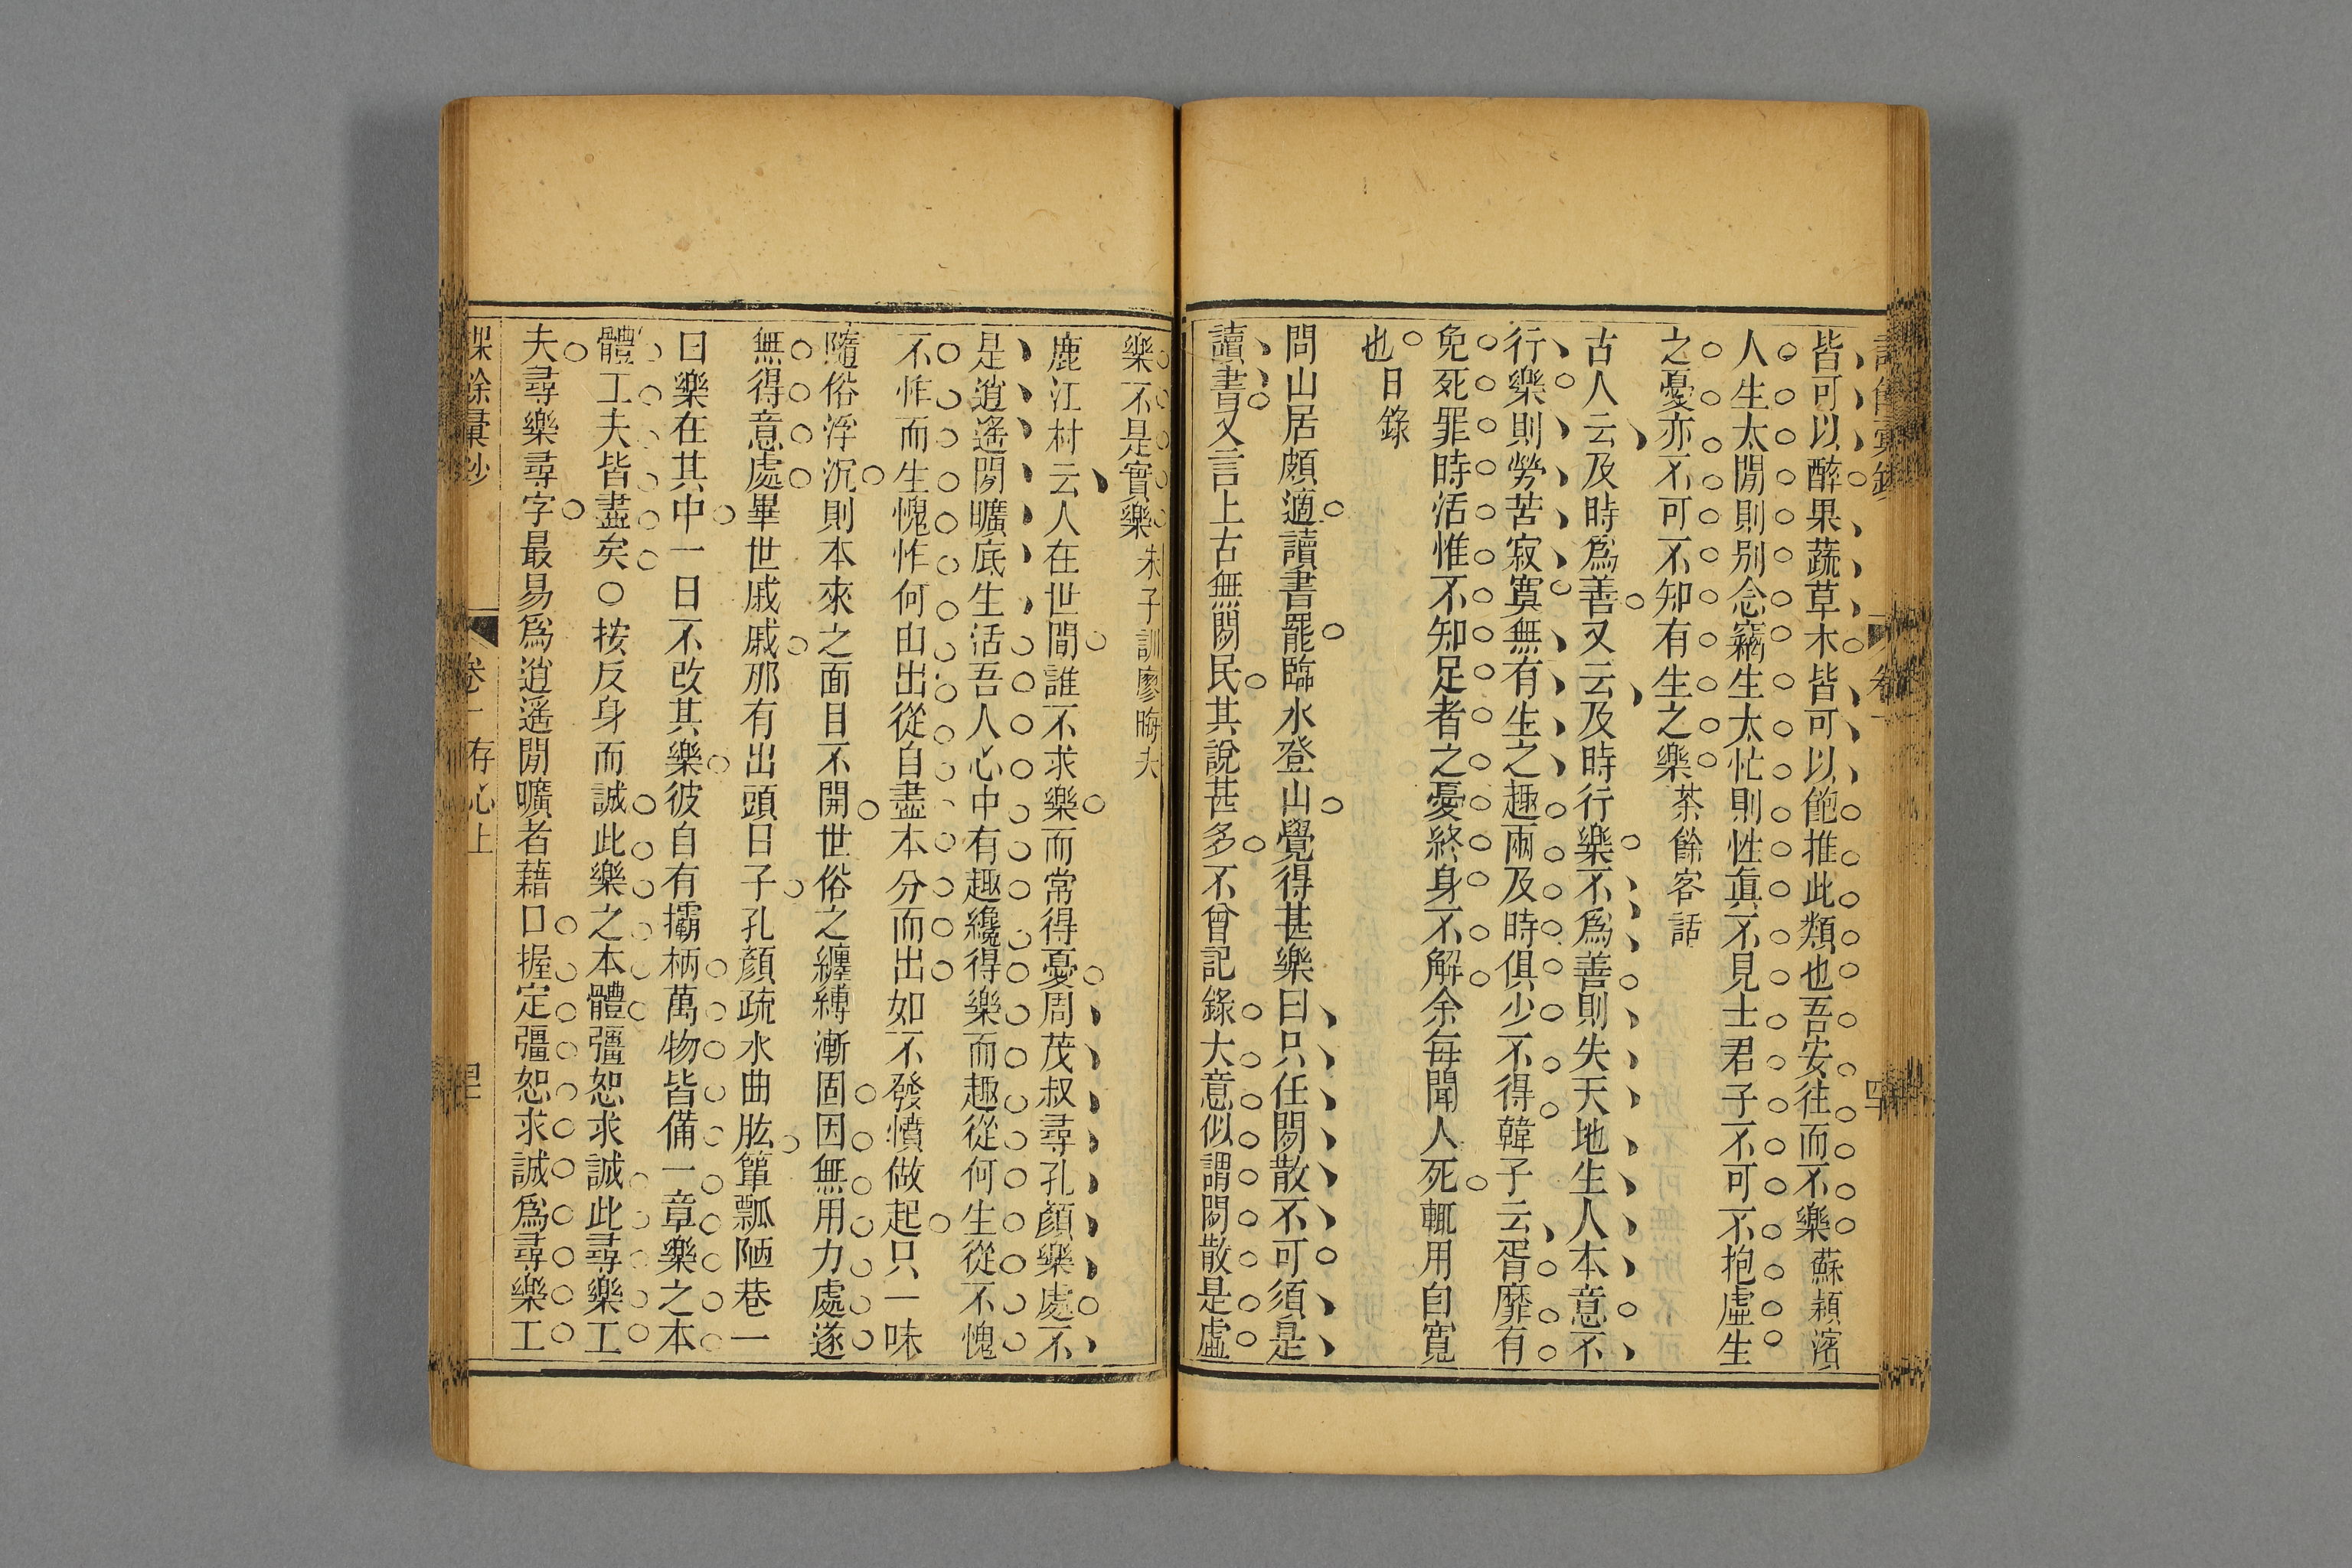 皆可以醉果蔬草木皆可以飽推此類也吾安往而不樂蘇潁濱
人生太閒則別念竊生太忙則性眞不見士君子不可不抱虛生
之憂亦不可不知有生之樂茶餘客話
古人云及時爲善又云及時行樂不爲善則失天地生人本意不
行樂則勞苦寂寞無有生之趣兩及時俱少不得韓子云胥靡有
免死罪時活惟不知足者之憂終身不解余每聞人死輒用自寬
也日錄
問山居頗適讀書罷臨水登山覺得甚樂曰只任閒散不可須是
讀書又言上古無閒民其說甚多不曾記錄大意似謂閒散是虛
樂不是實樂朱子訓廖晦夫
鹿江村云人在世間誰不求樂而常得憂周茂叔尋孔顏樂處不
是逍遙閒曠底生活吾人心中有趣纔得樂而趣從何生從不愧
不怍而生愧怍何由出從自盡本分而出如不發憤做起只一味
隨俗浮沉則本來之面目不開世俗之纏縛漸固因無用力處遂
無得意處畢世戚戚那有出頭日子孔顏疏水曲肱簞瓢陋巷一
曰樂在其中一曰不改其樂彼自有欛柄萬物皆備一章樂之本
體工夫皆盡矣○按反身而誠此樂之本體彊恕求誠此尋樂工
夫尋樂尋字最易爲逍遙閒曠者藉口握定彊恕求誠爲尋樂工
課餘彙鈔 卷一 存心上